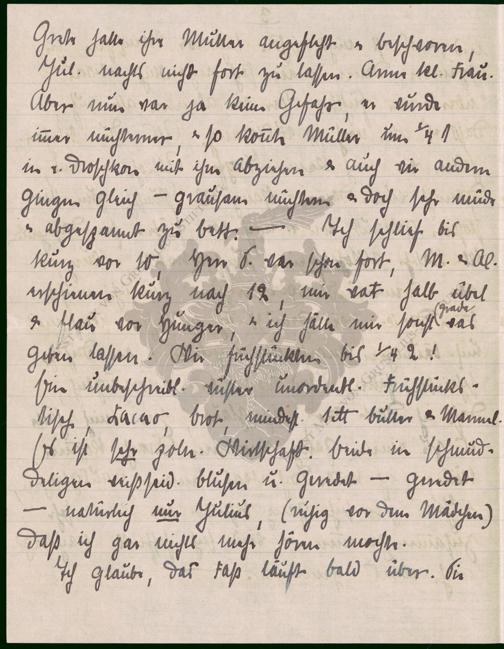 Grete hatte ihre Mutter angefleht u beschworen,
Jul. nachts nicht fort zu lassen. Arme kl. Frau.
Aber nun war ja keine Gefahr, er wurde
im̄er nüchterner, u so kon̄te Müller um ¼ 1
in e. Droschke mit ihm abziehen u auch wir andern
gingen gleich — grausam nüchtern u doch sehr müde
u abgespannt zu bett. — Ich schlief bis
kurz vor 10, Herr S. war schon fort, M. u Al.
erschienen kurz nach 12, mir war halb übel
u flau vor Hunger, u ich hätte mir sonst grade was
geben lassen. Wir frühstückten bis ¼ 2!
Ein unbeschreibl. wüster unordentl. Frühstücks-
tisch, Kacao, brot, butter u Marmel.
Es ist sehr poln. Wirtschaft, beide in schmud-
deligen weißseid. blusen u. Geredet — geredet
— natürlich nur Julius, (ruhig vor dem Mädchen)
daß ich gar nichts mehr hören mochte.
Ich glaube, das Faß läuft bald über. Die